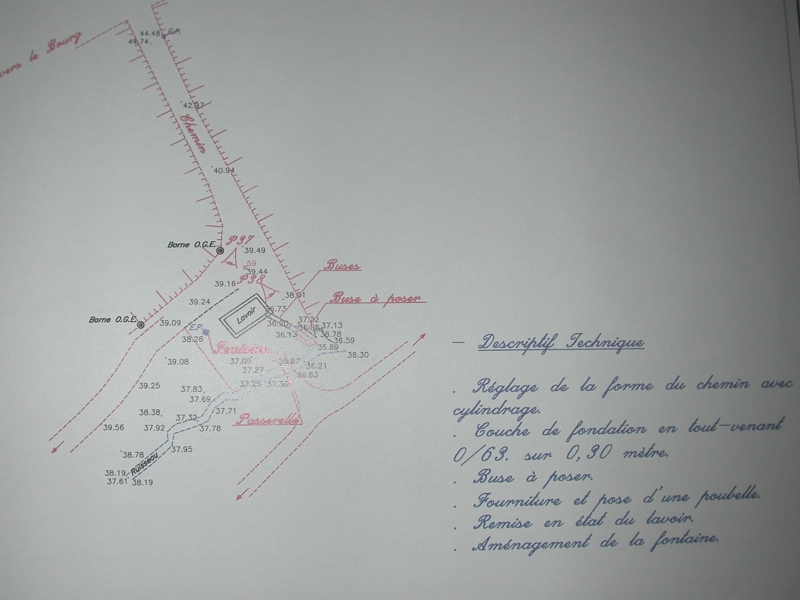 vers le Bourg
44.48 E.P.
44.74
42.97
Chemin
40.94
Borne O.G.E.
P37
39.49
59
39.44
39.16
P38
Buses
38.91
39.24
Buse à poser
Lavoir
37.22
37.13
Borne O.G.E.
39.09
E.P.
36.13
36.78
38.26
36.59
35.89
36.30
39.08
37.06
36.21
37.27
36.63
39.25
37.83
37.25
37.30
37.69
38.38
37.32
37.71
Passerelle
39.56
37.92
37.78
37.95
38.78
Ruisseau
38.19
37.61
38.19
— Descriptif Technique
. Réglage de la forme du chemin avec
cylindrage.
. Couche de fondation en tout-venant
0/63. sur 0,30 mètre.
. Buse à poser.
. Fourniture et pose d'une poubelle.
. Remise en état du lavoir.
. Aménagement de la fontaine.